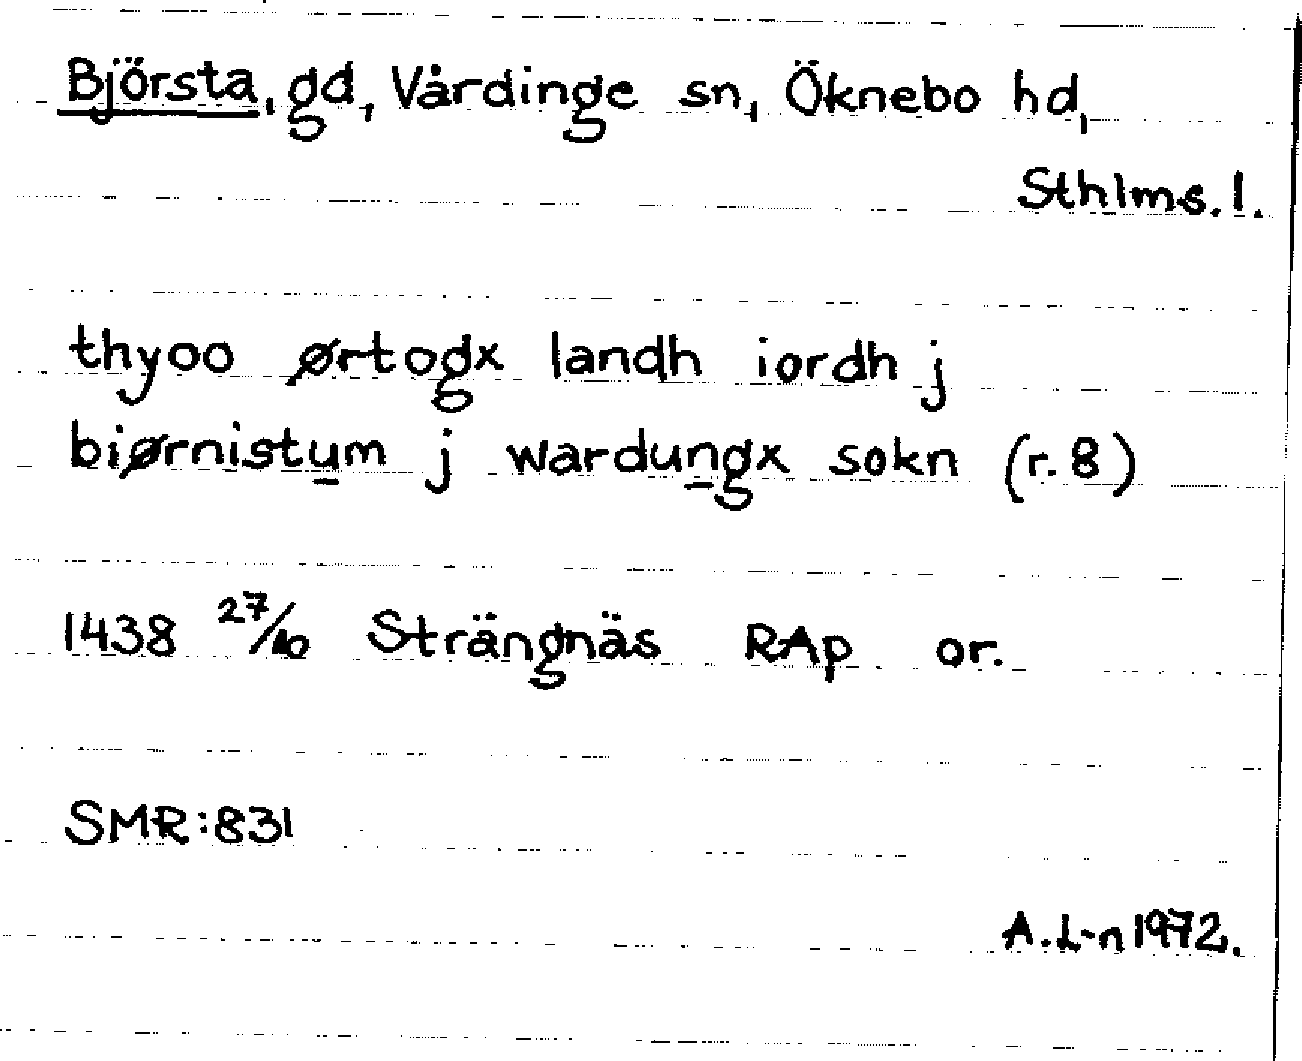 Björsta, gd, Vårdinge sn, Öknebo hd,
Sthlms. l.
thyoo ørtogx landh iordh j
biørnistum j wardungx sokn (r. 8)
1438 27/10 Strängnäs RAp or.
SMR:831
A.L-n 1972.